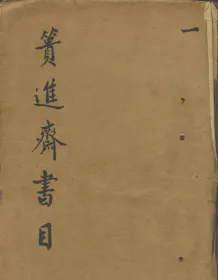 一
簣進齋書目